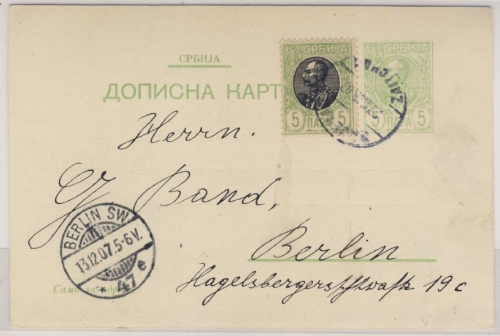 СРБИЈА
ДОПИСНА КАРТ
СРБИЈА
5 ПАРА 5
5 ПАРА 5
Herrn.
Band,
Berlin
Hagelsbergerstrasse 19c
BERLIN SW
13.12.07.5-6V.
47e